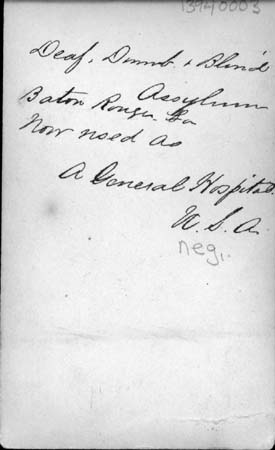 13940003
Deaf, Dumb. & Blind
Assylum
Baton Rouge. La
Now used as
A General Hospital.
U. S. A.
neg.